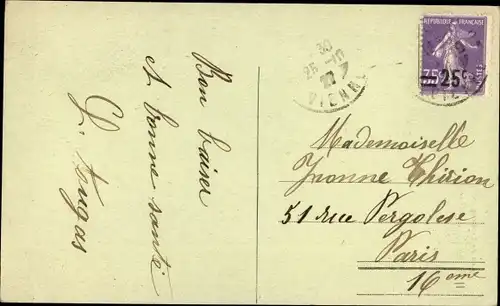 Bon baiser
et bonne santé
L. Fougas
30
25-10
27
VIENNE
REPUBLIQUE FRANÇAISE
35
25c
Mademoiselle
Yvonne Thirion
51 rue Pergolese
Paris
16eme